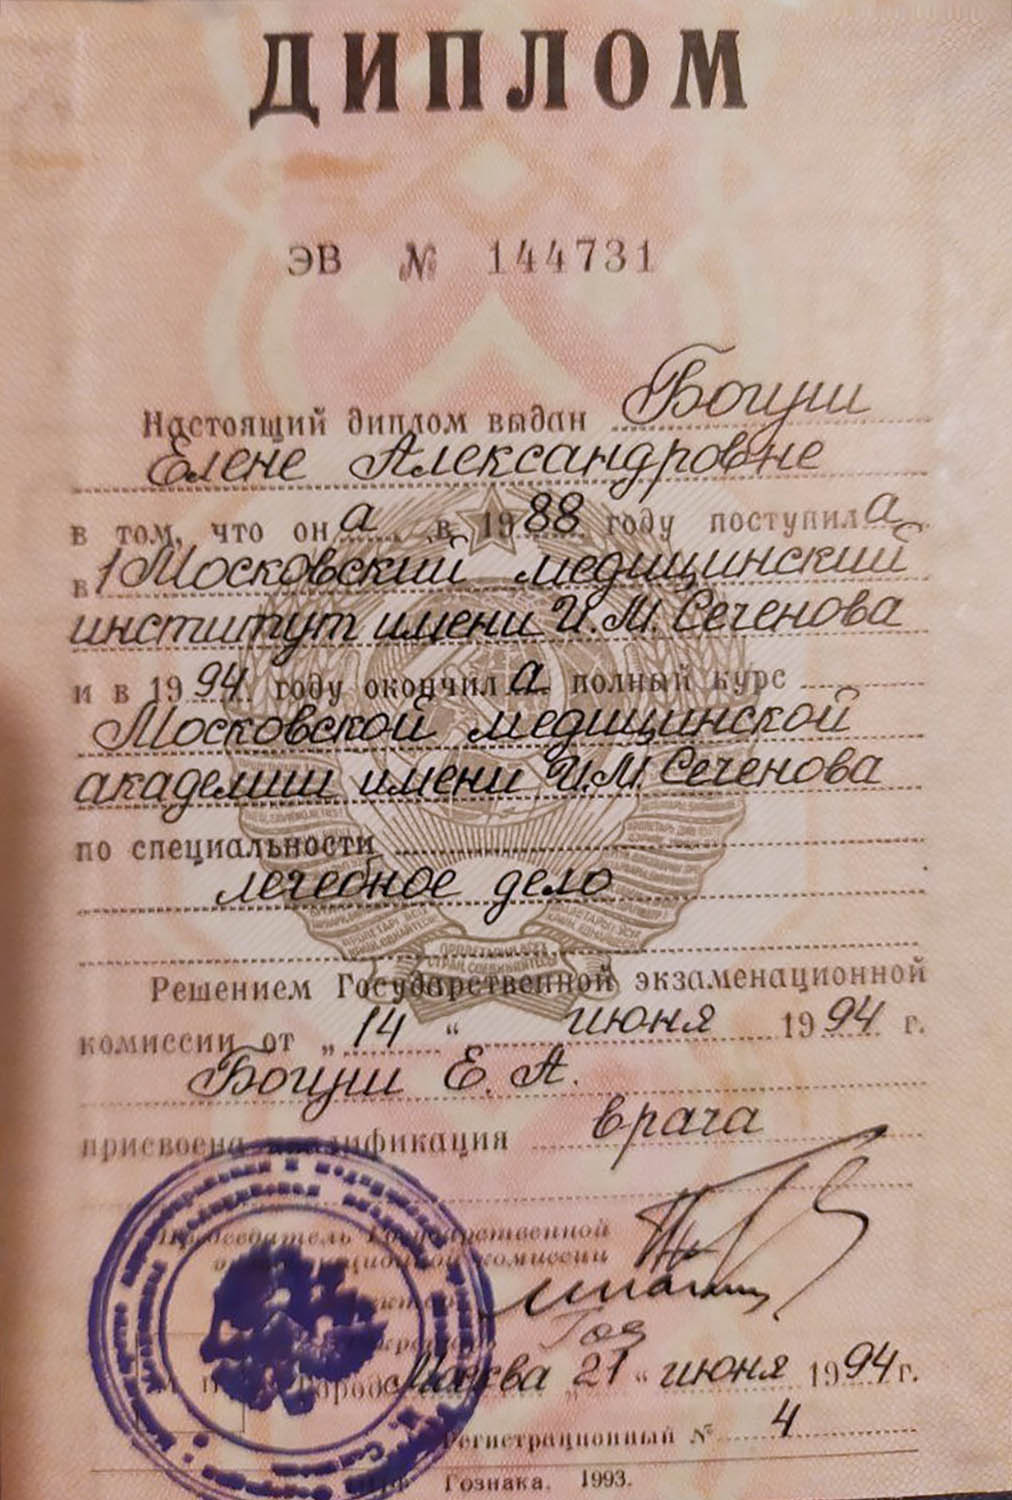 ДИПЛОМ
ЭВ № 144731
Настоящий диплом выдан Богуш
Елене Александровне
в том, что он а в 1988 году поступил а
в 1 Московский медицинский
институт имени И.М. Сеченова
и в 1994 году окончил а полный курс
Московской медицинской
академии имени И.М. Сеченова
по специальности
лечебное дело
Решением Государственной экзаменационной
комиссии от „14“ июня 1994 г.
Богуш Е. А.
присвоена квалификация врача
Председатель Государственной
комиссии
Москва 21 “ июня 1994 г.
Регистрационный № 4
Гознака. 1993.